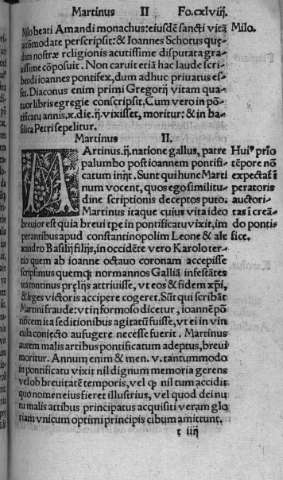 Martinus II Fo.cxlviij.
Milo.
Nolo beati Amandi monachus: eiusdē sancti vitā
accōmodate perscripsit: & Ioannes Schotus que-
dam nostræ religionis acutissime disputata gra-
uissime cōposuit. Non caruit etiā hac laude scri-
bēdi ioannes pontifex, dum adhuc priuatus es-
set. Diaconus enim primi Gregorij vitam qua-
tuor libris egregie conscripsit. Cum vero in pō-
tificatu annis .x. die .ij. vixisset, moritur: & in ba
silica Petri sepelitur.
Martinus II.
MArtinus .ij. natione gallus, patre
palumbo post ioannem pontifi-
catum inijt. Sunt qui hunc Marti
num vocent, quos ego similitu-
dine scriptionis deceptos puto.
Martinus itaque cuius vita ideo
breuior est quia breui tpe in pontificatu vixit, im
perantibus apud constantinopolim Leone & ale
xandro Basilij filijs, in occidēte vero Karolo ter-
tio quem ab ioanne octauo coronam accepisse
scripsimus quemq; normannos Galliā infestātes
tum continuis prelijs attriuisse, vt eos & fidem xp̄i,
& leges victoris accipere cogeret. Sūt qui scribāt
Martini fraude: vt in formoso dicetur, ioannē pō
tificem ita seditionibus agitatū fuisse, vt ei in vin
cula coniecto aufugere necesse fuerit. Martinus
autem malis artibus pontificatum adeptus, breui
moritur. Annum enim & men. v. tantummodo
in pontificatu vixit nil dignum memoria gerens
vel ob breuitatē temporis, vel q nil tum accidit
quo nomen eius fieret illustrius, vel quod dei nu
tu malis attibus principatus acquisiti veram glo
riam vnicum optimi principis cibum amittunt.
Hui⁹ prīo
tēpore nō
expectaſ ī
peratoris
auctori-
tas ī creā-
do ponti-
fice.
t iiij